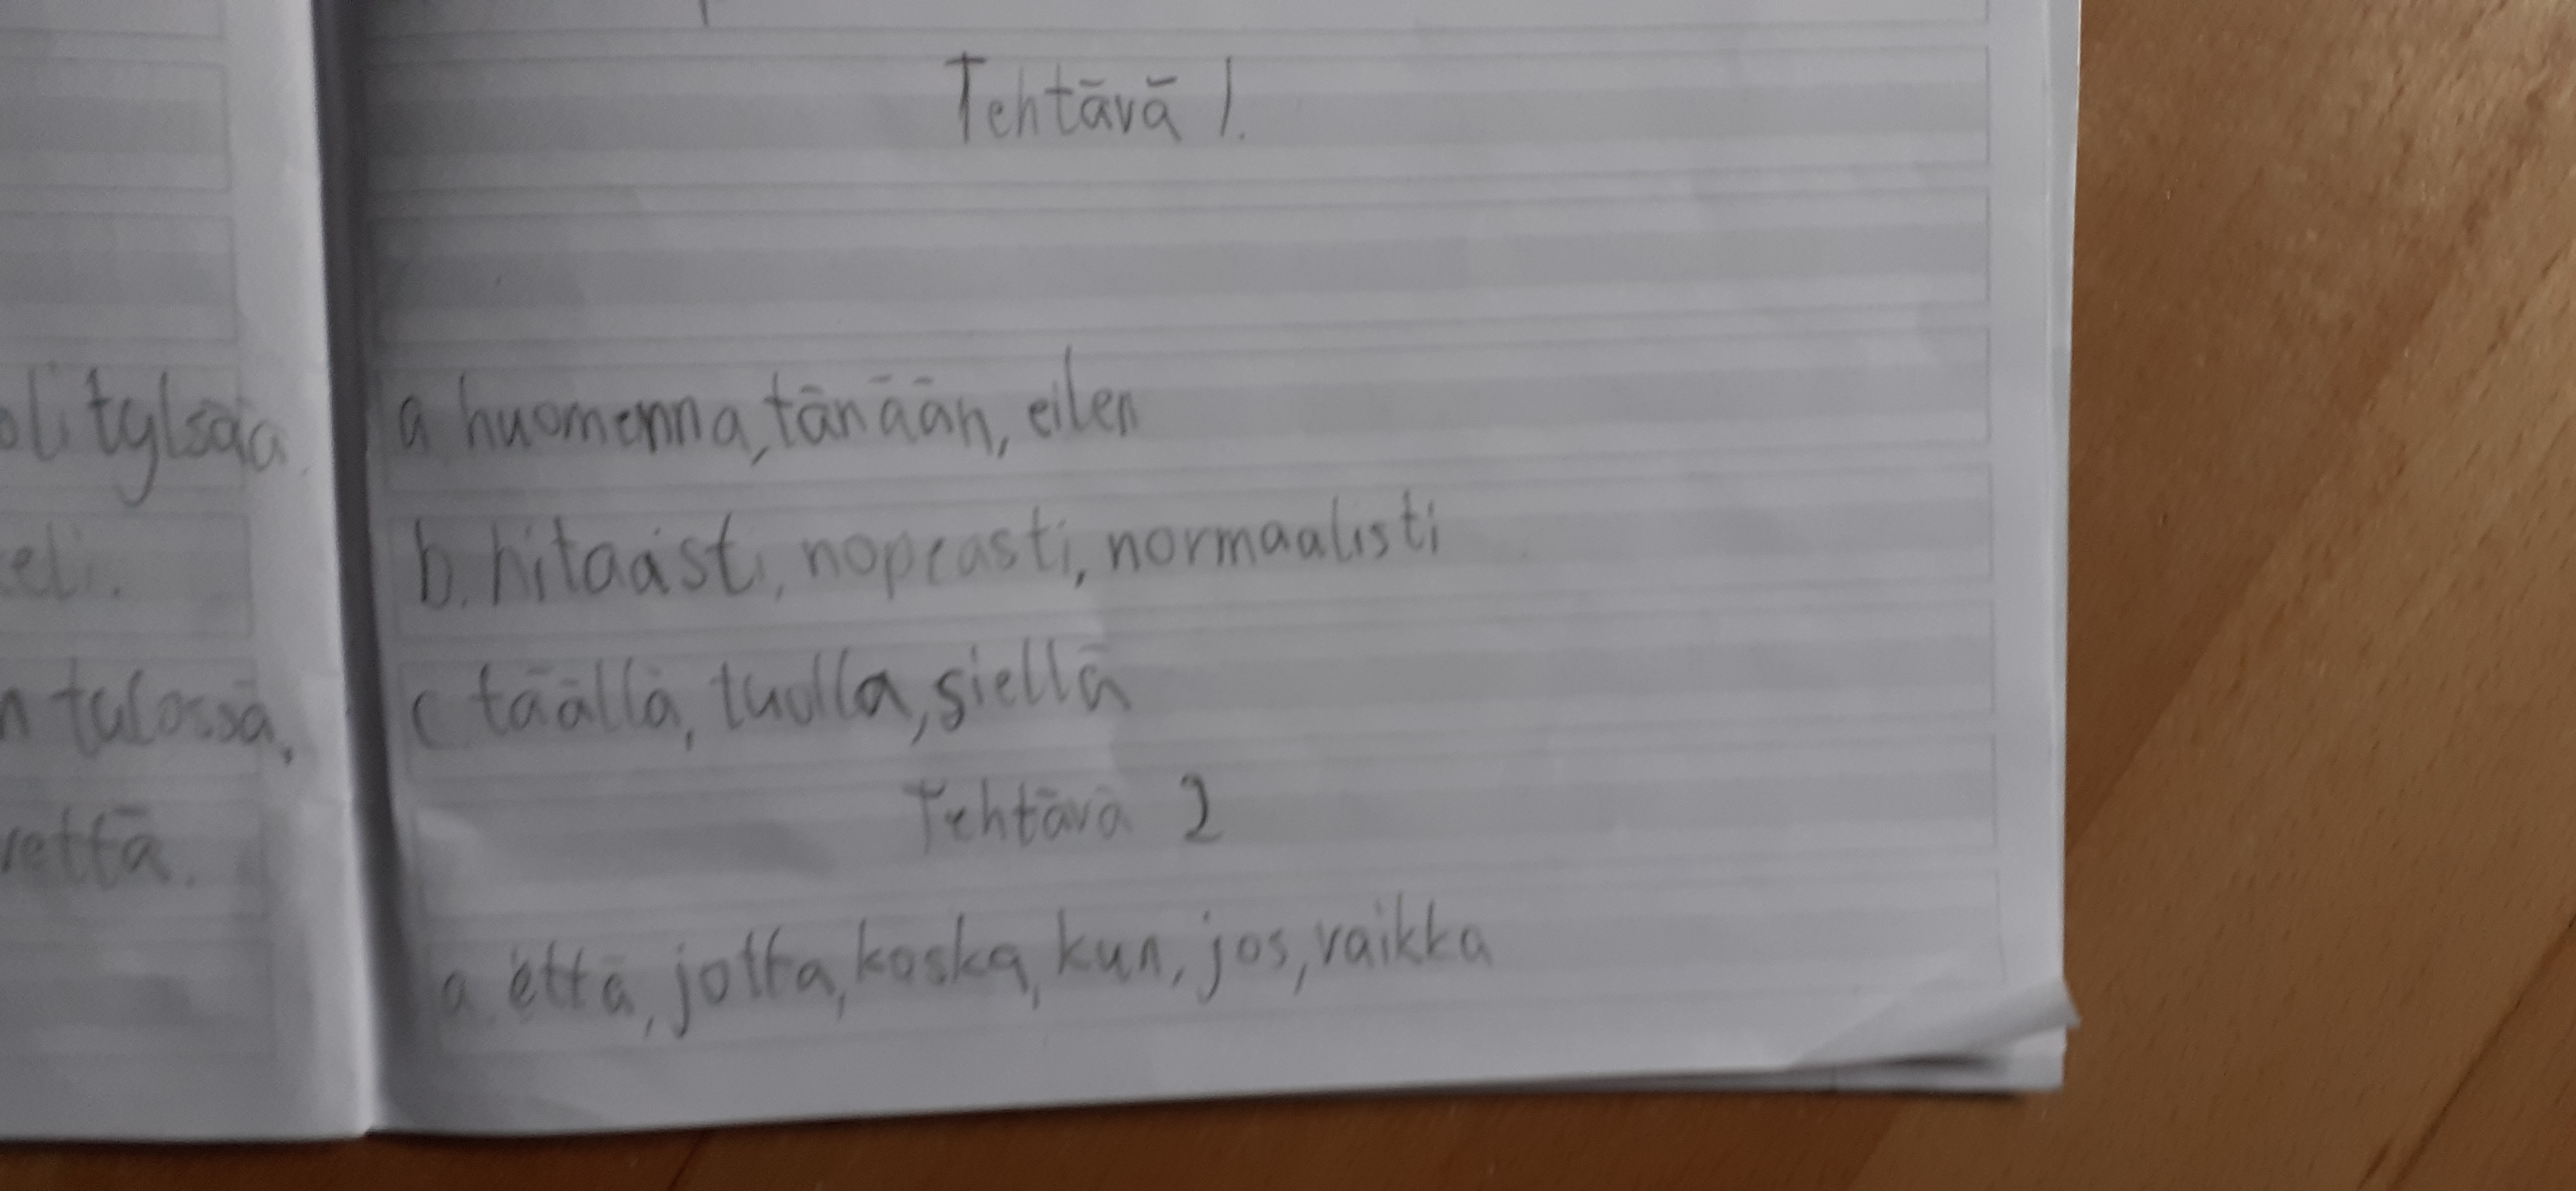 tylsää.
tulossa,
Tehtävä 1.
a huomenna, tänään, eilen
b. hitaasti, nopeasti, normaalisti
c täällä, tuolla, siellä
Tehtävä 2
a. että, jotta, koska, kun, jos, vaikka